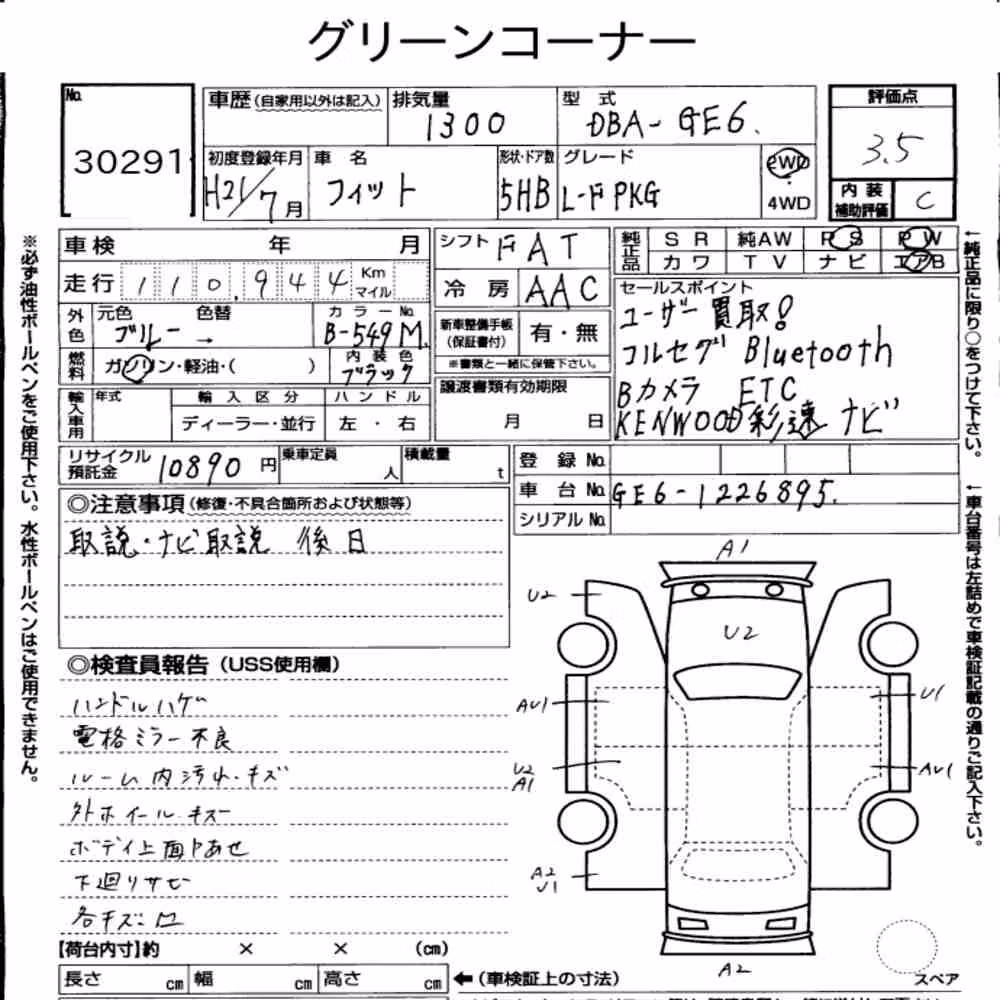 グリーンコーナー
No. 30291
車歴 (自家用以外は記入) 排気量 1300 型式 DBA-GE6. 評価点 3.5
初度登録年月 H21/7月 車名 フィット 形状・ドア数 5HB グレード L-F PKG 2WD 4WD
内装補助評価 C
車検 年 月 シフト FAT 純正品 SR 純AW PS PW
カワ TV ナビ エアB
走行 110,944 Km マイル 冷房 AAC
セールスポイント
ユーザー買取!
コルセグ Bluetooth
Bカメラ ETC
KENWOOD彩速ナビ
外色 元色 ブルー 色替 → カラーNo. B-549M
新車整備手帳 (保証書付) 有・無
※書類と一緒に保管下さい。
燃料 ガソリン・軽油・( ) 内装色 ブラック
譲渡書類有効期限 月 日
輸入車用 年式 輸入区分 ハンドル
ディーラー・並行 左・右
リサイクル預託金 10890円 乗車定員 人 積載量 t
登録No.
車台No. GE6-1226895.
シリアルNo.
◎注意事項 (修復・不具合箇所および状態等)
取説・ナビ取説 後日
◎検査員報告 (USS使用欄)
ハンドルハゲ
電格ミラー不良
ルーム内汚れ・キズ
外ホイールキズ
ボディ上面トあせ
下廻りサビ
各キズ凹
A1
U2
U2
AU1
U1
U2
A1
AU1
A2
U1
A2
スペア
【荷台内寸】約 × × (cm)
長さ cm 幅 cm 高さ cm ←(車検証上の寸法)
※必ず油性ボールペンをご使用下さい。水性ボールペンはご使用できません。
←純正品に限り○をつけて下さい。
←車台番号は左詰めで車検証記載の通りご記入下さい。